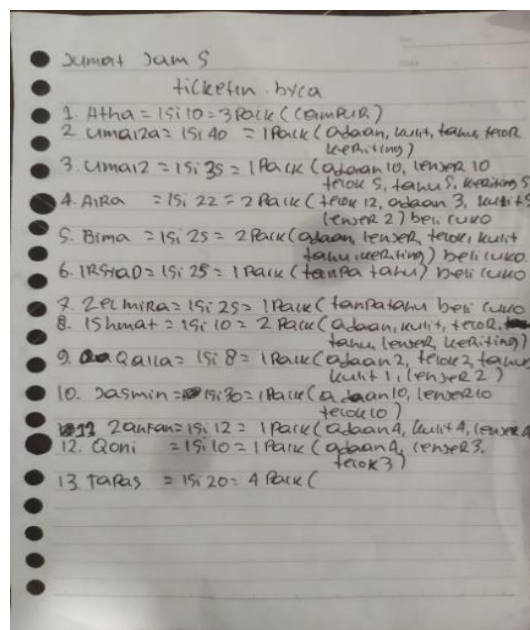 Jumat Jam 5
ticketin.byca
1. Atha = isi 10 = 3 Pack (campur)
2 Umaiza = isi 40 = 1 Pack (adaan, kulit, tahu, telor
keriting)
3. Umaiz = isi 35 = 1 Pack (adaan 10, lenjer 10
telok 5, tahu 5, keriting 5
4. Aira = isi 22 = 2 Pack (telok 12, adaan 3, kulit 5
lenjer 2) beli cuko
5. Bima = isi 25 = 2 Pack (adaan, lenjer, telok, kulit
tahu, keriting) beli cuko.
6. Irsyad = isi 25 = 1 Pack (tanpa tahu) beli cuko
7. Zelmira = isi 25 = 1 Pack (tanpa tahu beli cuko
8. Ishmat = isi 10 = 2 Pack (adaan, kulit, telor,
tahu, lenjer, keriting)
9. Qaila = isi 8 = 1 Pack (adaan 2, telok 2, tahu
kulit 1, lenjer 2)
10. Jasmin = isi 30 = 1 Pack (adaan 10, lenjer 10
telok 10)
11 Zaufan = isi 12 = 1 Pack (adaan 4, kulit 4, lenjer 4
12. Qoni = isi 10 = 1 Pack (adaan 4, lenjer 3.
telok 3)
13 Tapas = isi 20 = 4 Pack (